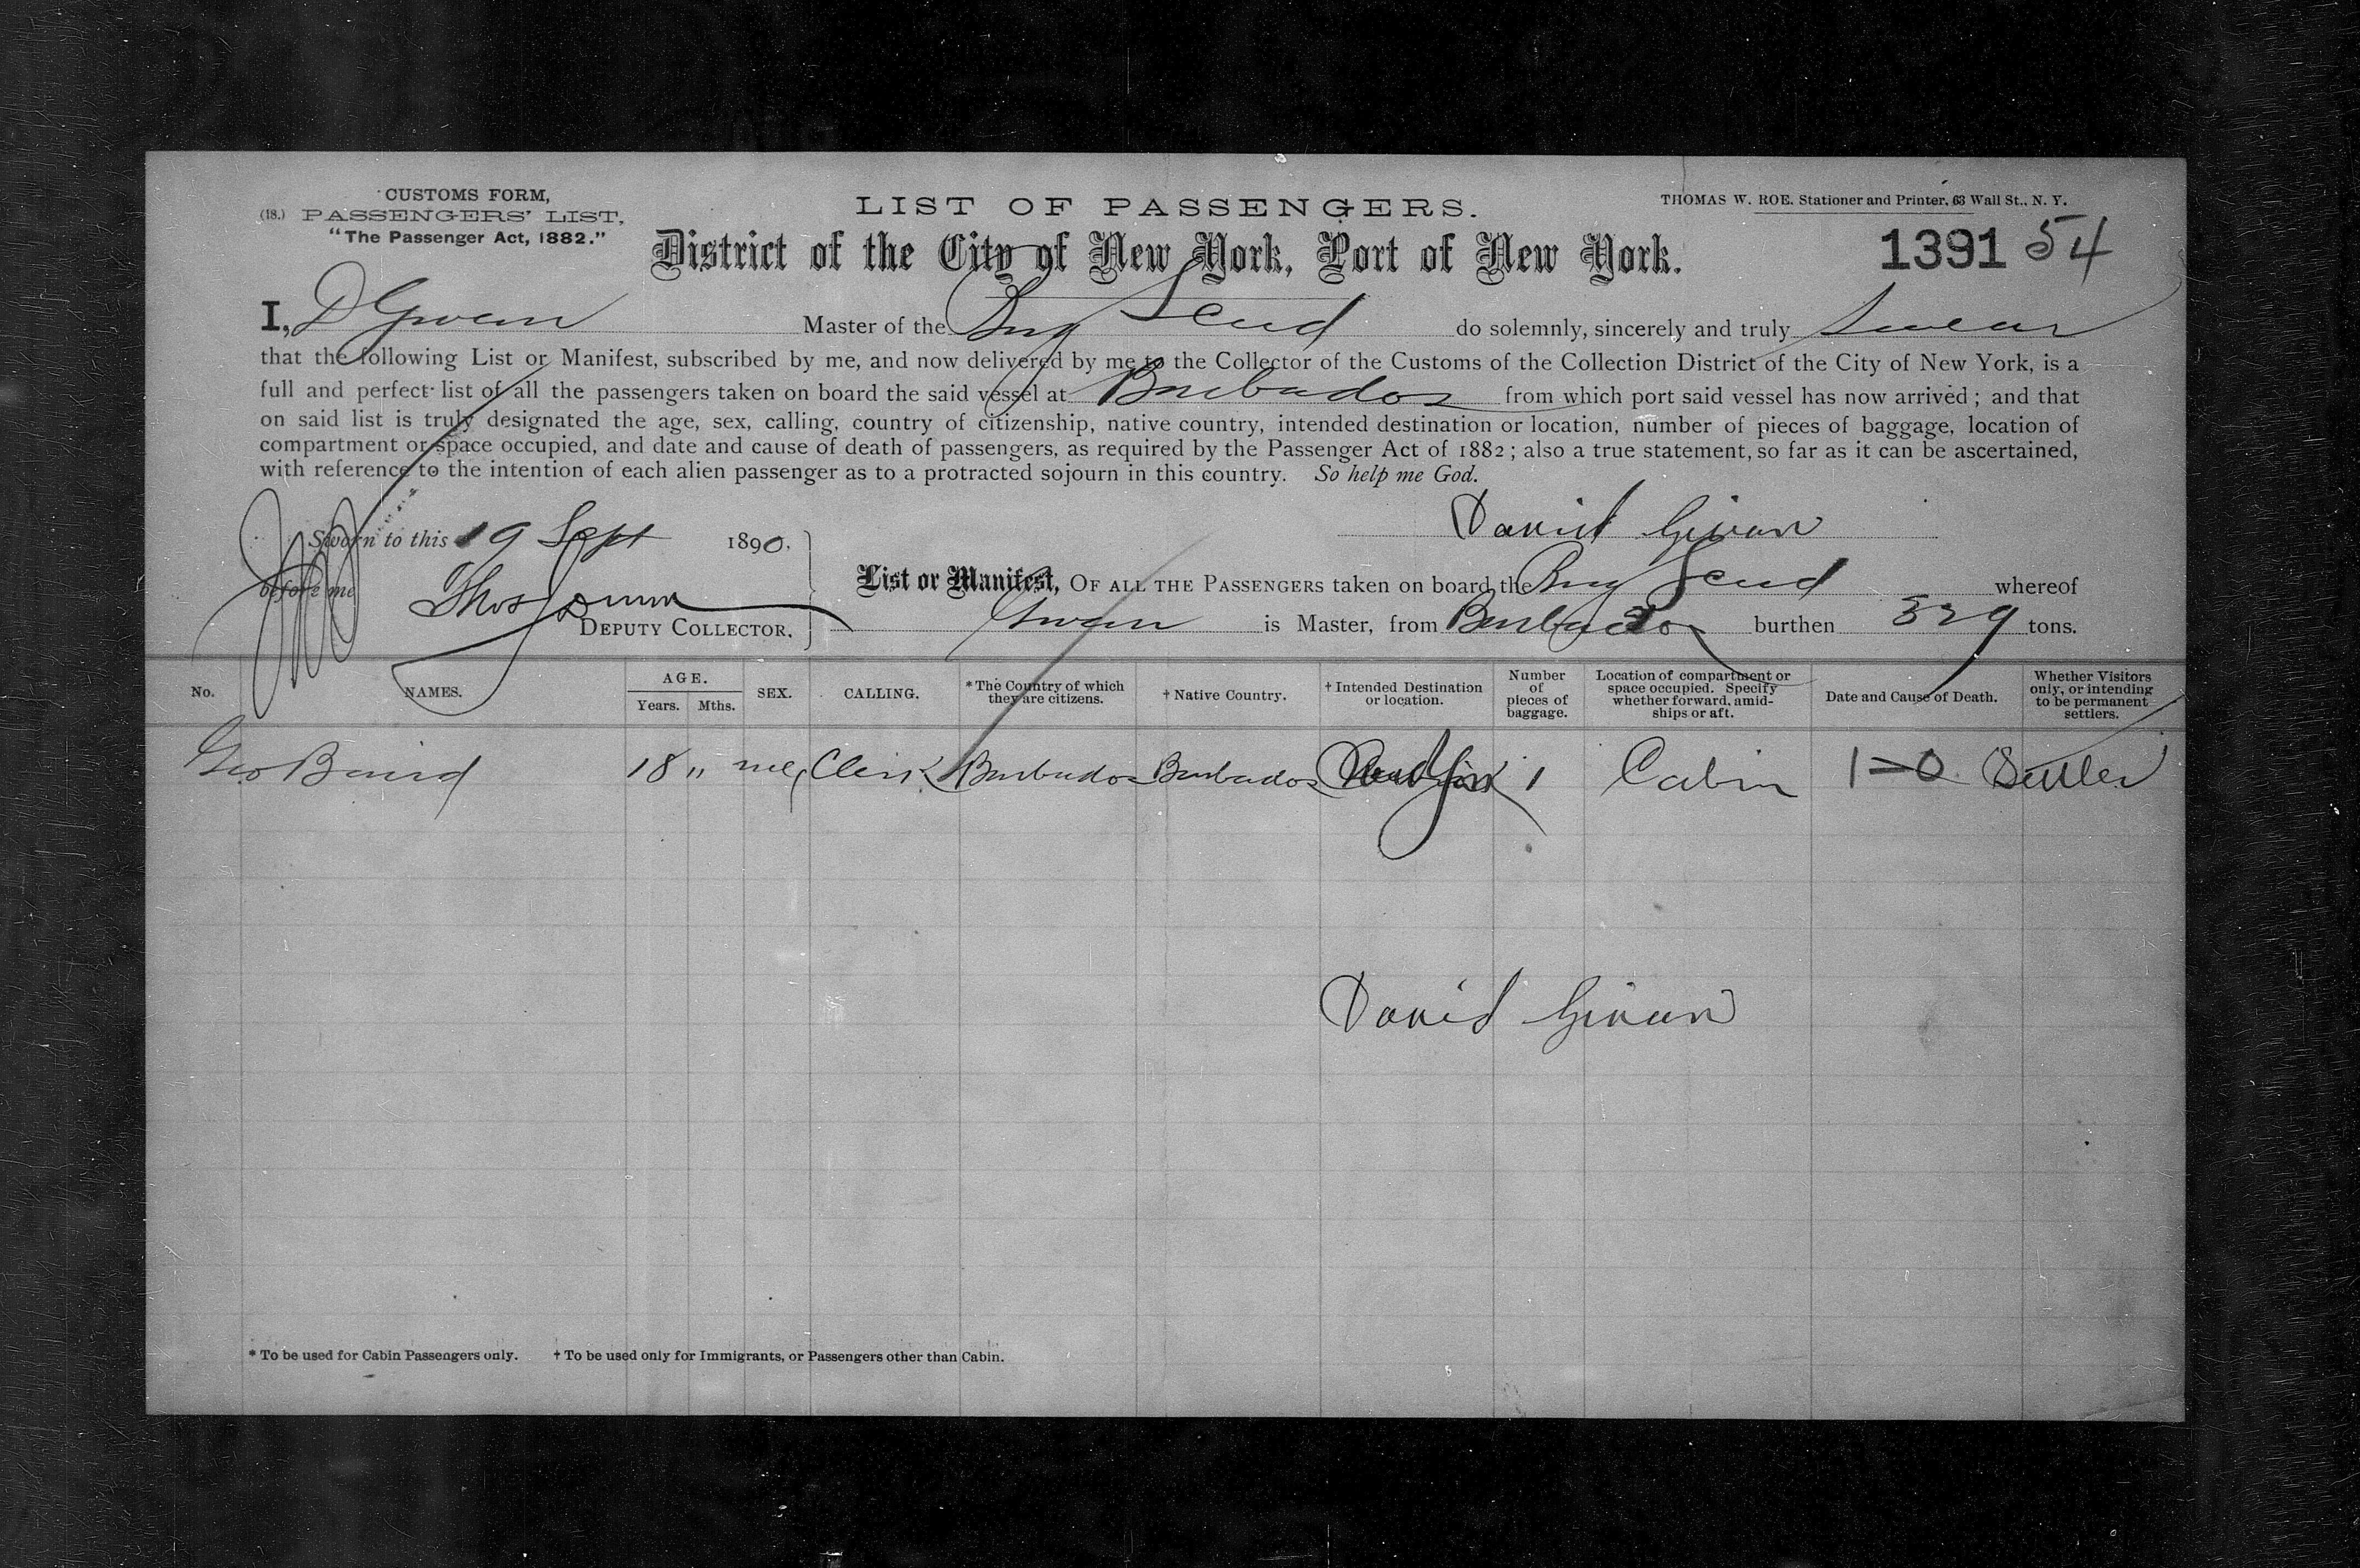 CUSTOMS FORM,
(18.) PASSENGERS' LIST,
"The Passenger Act, 1882."
LIST OF PASSENGERS.
THOMAS W. ROE. Stationer and Printer, 63 Wall St., N. Y.
District of the City of New York, Port of New York.
1391 54
I, D Givan Master of the Brig Scud do solemnly, sincerely and truly swear
that the following List or Manifest, subscribed by me, and now delivered by me to the Collector of the Customs of the Collection District of the City of New York, is a
full and perfect list of all the passengers taken on board the said vessel at Barbados from which port said vessel has now arrived; and that
on said list is truly designated the age, sex, calling, country of citizenship, native country, intended destination or location, number of pieces of baggage, location of
compartment or space occupied, and date and cause of death of passengers, as required by the Passenger Act of 1882; also a true statement, so far as it can be ascertained,
with reference to the intention of each alien passenger as to a protracted sojourn in this country. So help me God.
David Givan
Sworn to this 19 Sept 1890.
before me Thos
DEPUTY COLLECTOR.
List or Manifest, OF ALL THE PASSENGERS taken on board the Brig Scud whereof
Givan is Master, from Barbados burthen 329 tons.
No. NAMES. AGE. Years. Mths. SEX. CALLING. * The Country of which they are citizens. † Native Country. † Intended Destination or location. Number of pieces of baggage. Location of compartment or space occupied. Specify whether forward, amidships or aft. Date and Cause of Death. Whether Visitors only, or intending to be permanent settlers.
Geo Baird 18 " Clerk Barbados Barbados New York 1 Cabin 1=0 Settler
David Givan
* To be used for Cabin Passengers only. † To be used only for Immigrants, or Passengers other than Cabin.